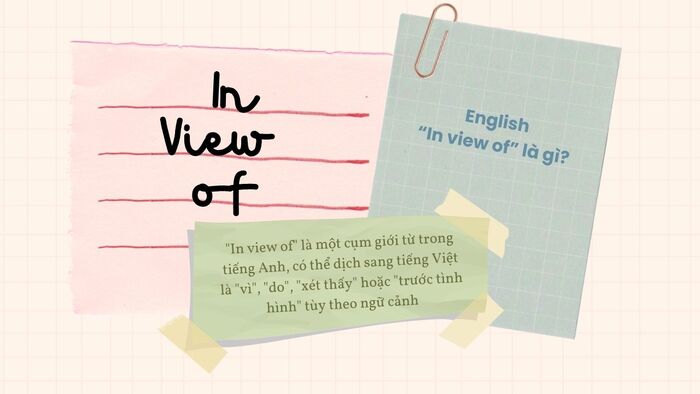 In
View
of
English
“In view of” là gì?
"In view of" là một cụm giới từ trong
tiếng Anh, có thể dịch sang tiếng Việt
là "vì", "do", "xét thấy" hoặc "trước tình
hình" tùy theo ngữ cảnh